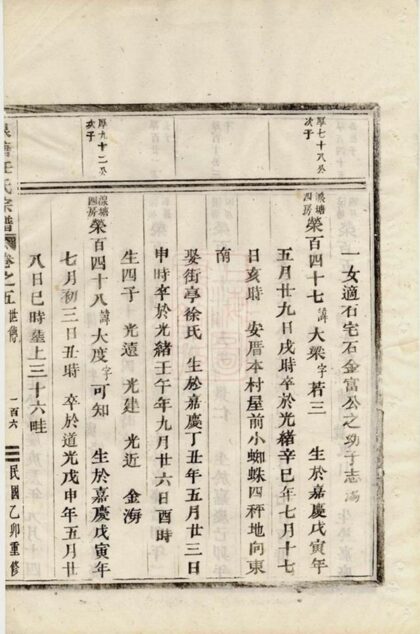 一女適石宅石金富公之幼子志海
厚七十八公
次子
浪塘
四房
榮百四十七諱大榮字若三 生於嘉慶戊寅年
五月廿九日戌時卒於光緒辛巳年七月十七
日亥時 安厝本村屋前小蜘蛛四秤地向東
南
娶街亭徐氏 生於嘉慶丁丑年五月廿三日
申時卒於光緒壬午年九月廿六日酉時
生四子 光遠 光建 光近 金海
厚九十二公
次子
浪塘
四房
榮百四十八諱大度字可知 生於嘉慶戊寅年
七月初三日丑時 卒於道光戊申年五月廿
八日巳時塟上三十六畦
塘任氏宗譜 卷之五 世傳 二百六 民國乙卯重修